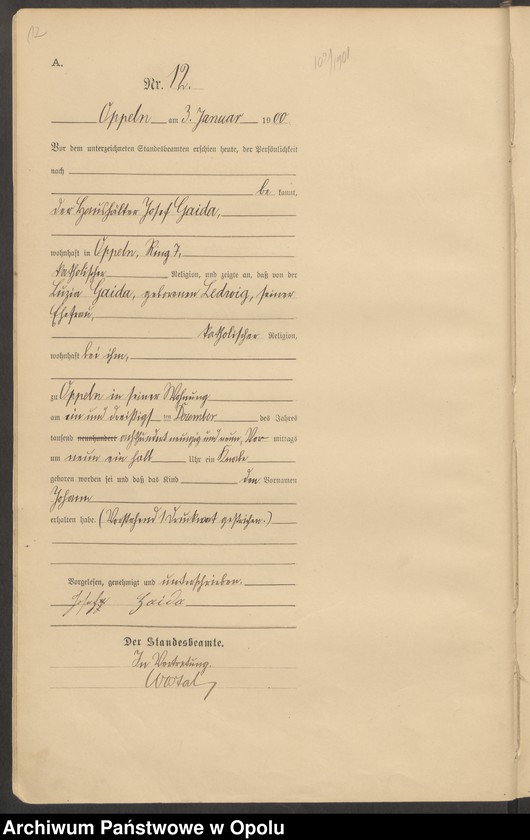 12
A.
Nr. 12.
Oppeln am 3. Januar 1900
Vor dem unterzeichneten Standesbeamten erschien heute, der Persönlichkeit
nach
be kannt,
der Haushälter Josef Gaida,
wohnhaft in Oppeln, Ring 7,
katholischer Religion, und zeigte an, daß von der
Luzia Gaida, geborenen Ledwig, seiner
Ehefrau,
katholischer Religion,
wohnhaft bei ihm,
zu Oppeln in seiner Wohnung
am ein und dreißigsten Dezember des Jahres
tausend neunhundert achthundert neunzig und neun, Vor mittags
um neun ein halb Uhr ein Knabe
geboren worden sei und daß das Kind den Vornamen
Johann
erhalten habe. (Vorstehend 1 Druckwort gestrichen.)
Vorgelesen, genehmigt und unterschrieben.
Josef Gaida
Der Standesbeamte.
In Vertretung.
Archiwum Państwowe w Opolu